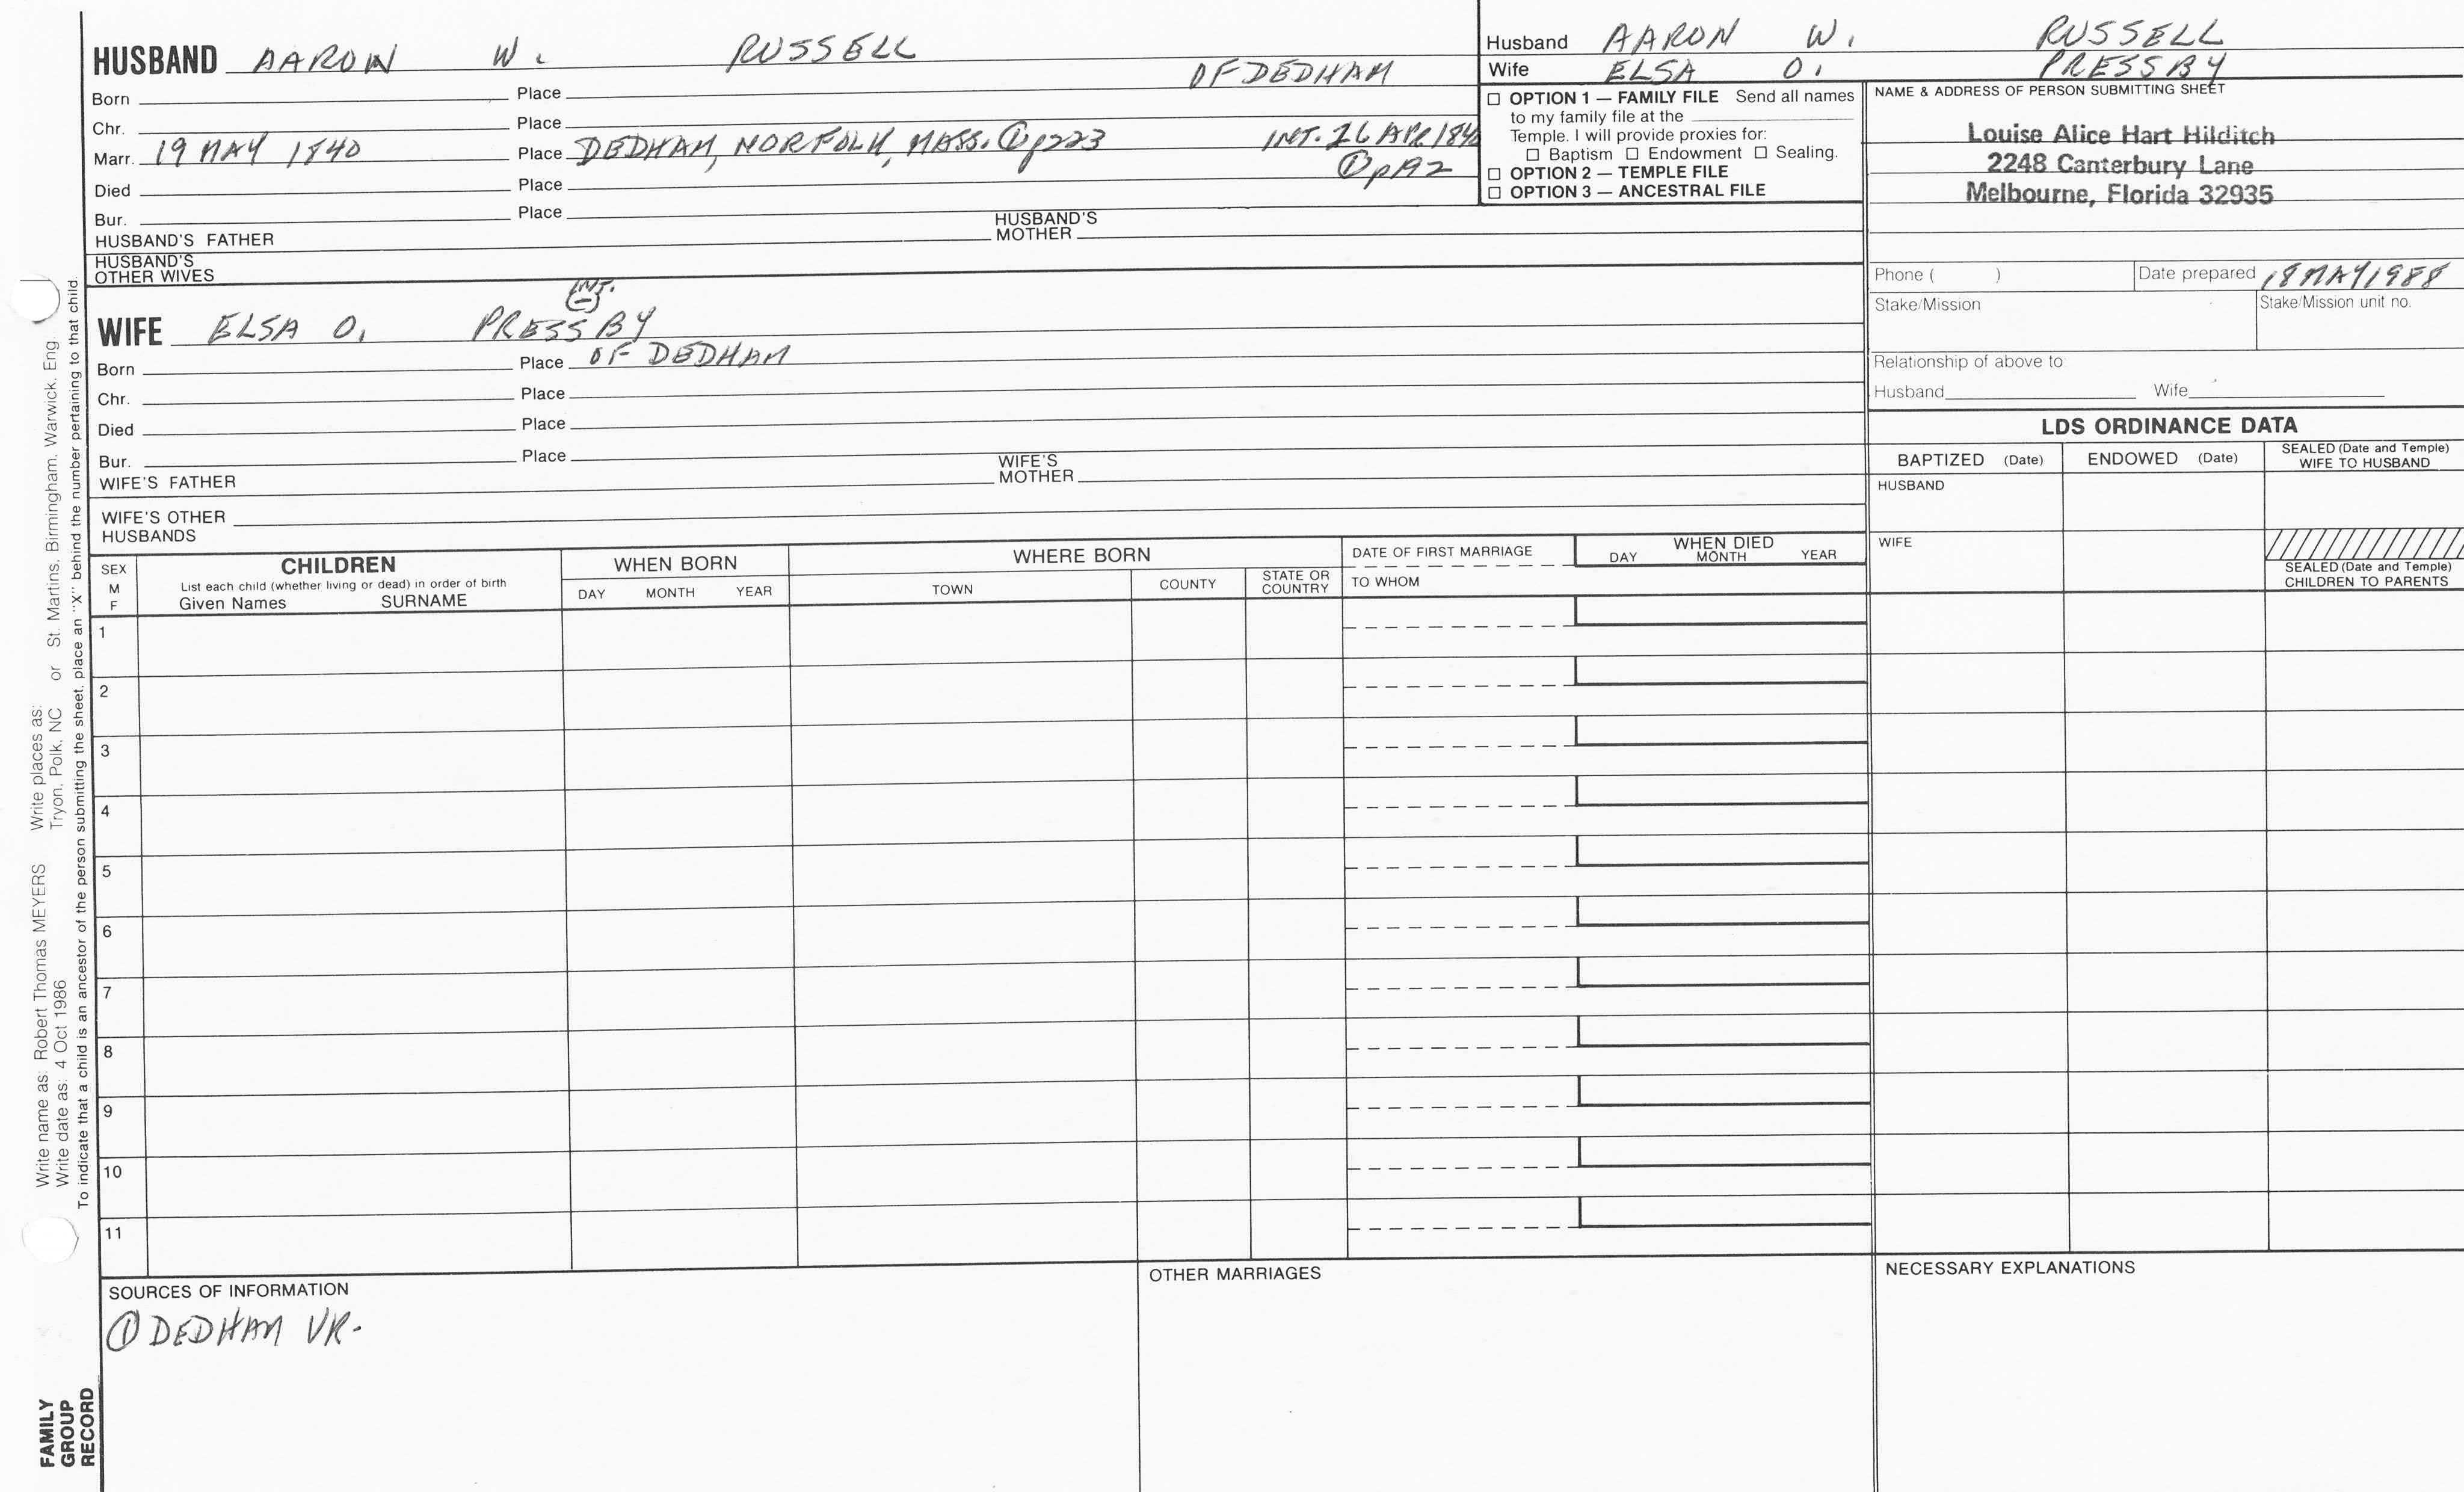 HUSBAND AARON W. RUSSELL
OF DEDHAM
Born Place
Chr. Place
Marr. 19 MAY 1840 Place DEDHAM, NORFOLK, MASS. ① p223 INT. 26 APR 1840
① p
Died Place
Bur. Place
HUSBAND'S FATHER HUSBAND'S MOTHER
HUSBAND'S
OTHER WIVES
INT.
WIFE ELSA O. PRESSBY
Born Place OF DEDHAM
Chr. Place
Died Place
Bur. Place
WIFE'S FATHER WIFE'S MOTHER
WIFE'S OTHER
HUSBANDS
Husband AARON W. RUSSELL
Wife ELSA O. PRESSBY
☐ OPTION 1 — FAMILY FILE Send all names
to my family file at the
Temple. I will provide proxies for:
☐ Baptism ☐ Endowment ☐ Sealing.
☐ OPTION 2 — TEMPLE FILE
☐ OPTION 3 — ANCESTRAL FILE
NAME & ADDRESS OF PERSON SUBMITTING SHEET
Louise Alice Hart Hilditch
2248 Canterbury Lane
Melbourne, Florida 32935
Phone ( ) Date prepared 18 MAY 1988
Stake/Mission Stake/Mission unit no.
Relationship of above to:
Husband Wife
LDS ORDINANCE DATA
BAPTIZED (Date) ENDOWED (Date) SEALED (Date and Temple)
WIFE TO HUSBAND
HUSBAND
WIFE
SEALED (Date and Temple)
CHILDREN TO PARENTS
SEX
M
F
CHILDREN
List each child (whether living or dead) in order of birth
Given Names SURNAME
WHEN BORN
DAY MONTH YEAR
WHERE BORN
TOWN COUNTY STATE OR
COUNTRY
DATE OF FIRST MARRIAGE
TO WHOM
WHEN DIED
DAY MONTH YEAR
1
2
3
4
5
6
7
8
9
10
11
SOURCES OF INFORMATION
① DEDHAM VR.
OTHER MARRIAGES
NECESSARY EXPLANATIONS
Write name as: Robert Thomas MEYERS Write places as:
Write date as: 4 Oct 1986 Tryon, Polk, NC or St. Martins, Birmingham, Warwick, Eng.
To indicate that a child is an ancestor of the person submitting the sheet, place an "X" behind the number pertaining to that child.
FAMILY
GROUP
RECORD